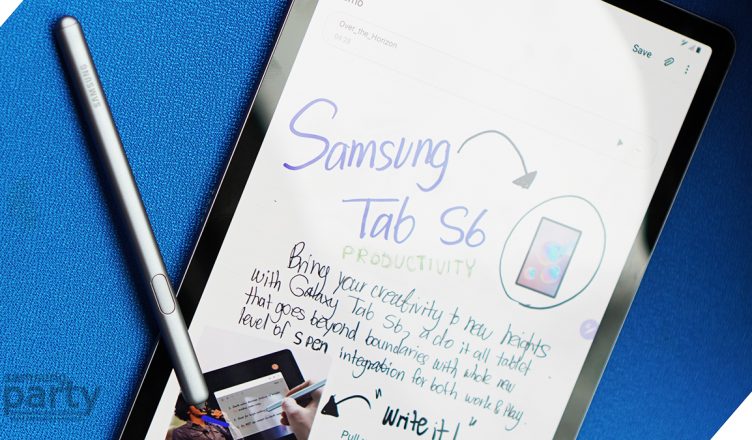 Over_the_Horizon
Save
SAMSUNG
Samsung
Tab S6
PRODUCTIVITY
Bring your creativity to new heights
with Galaxy Tab S6, a do it all tablet
that goes beyond boundaries with whole new
level of S PEN integration for both work & play.
"Write it!"
Pull
party